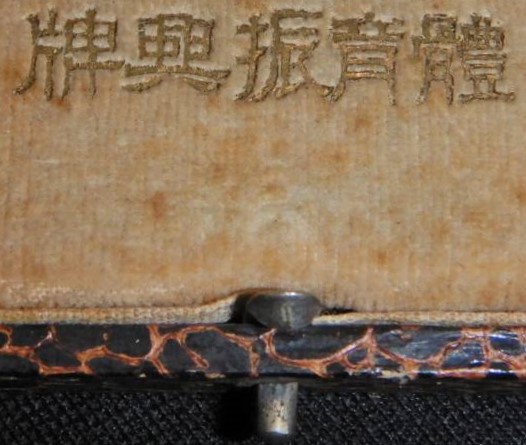 體育振興牌